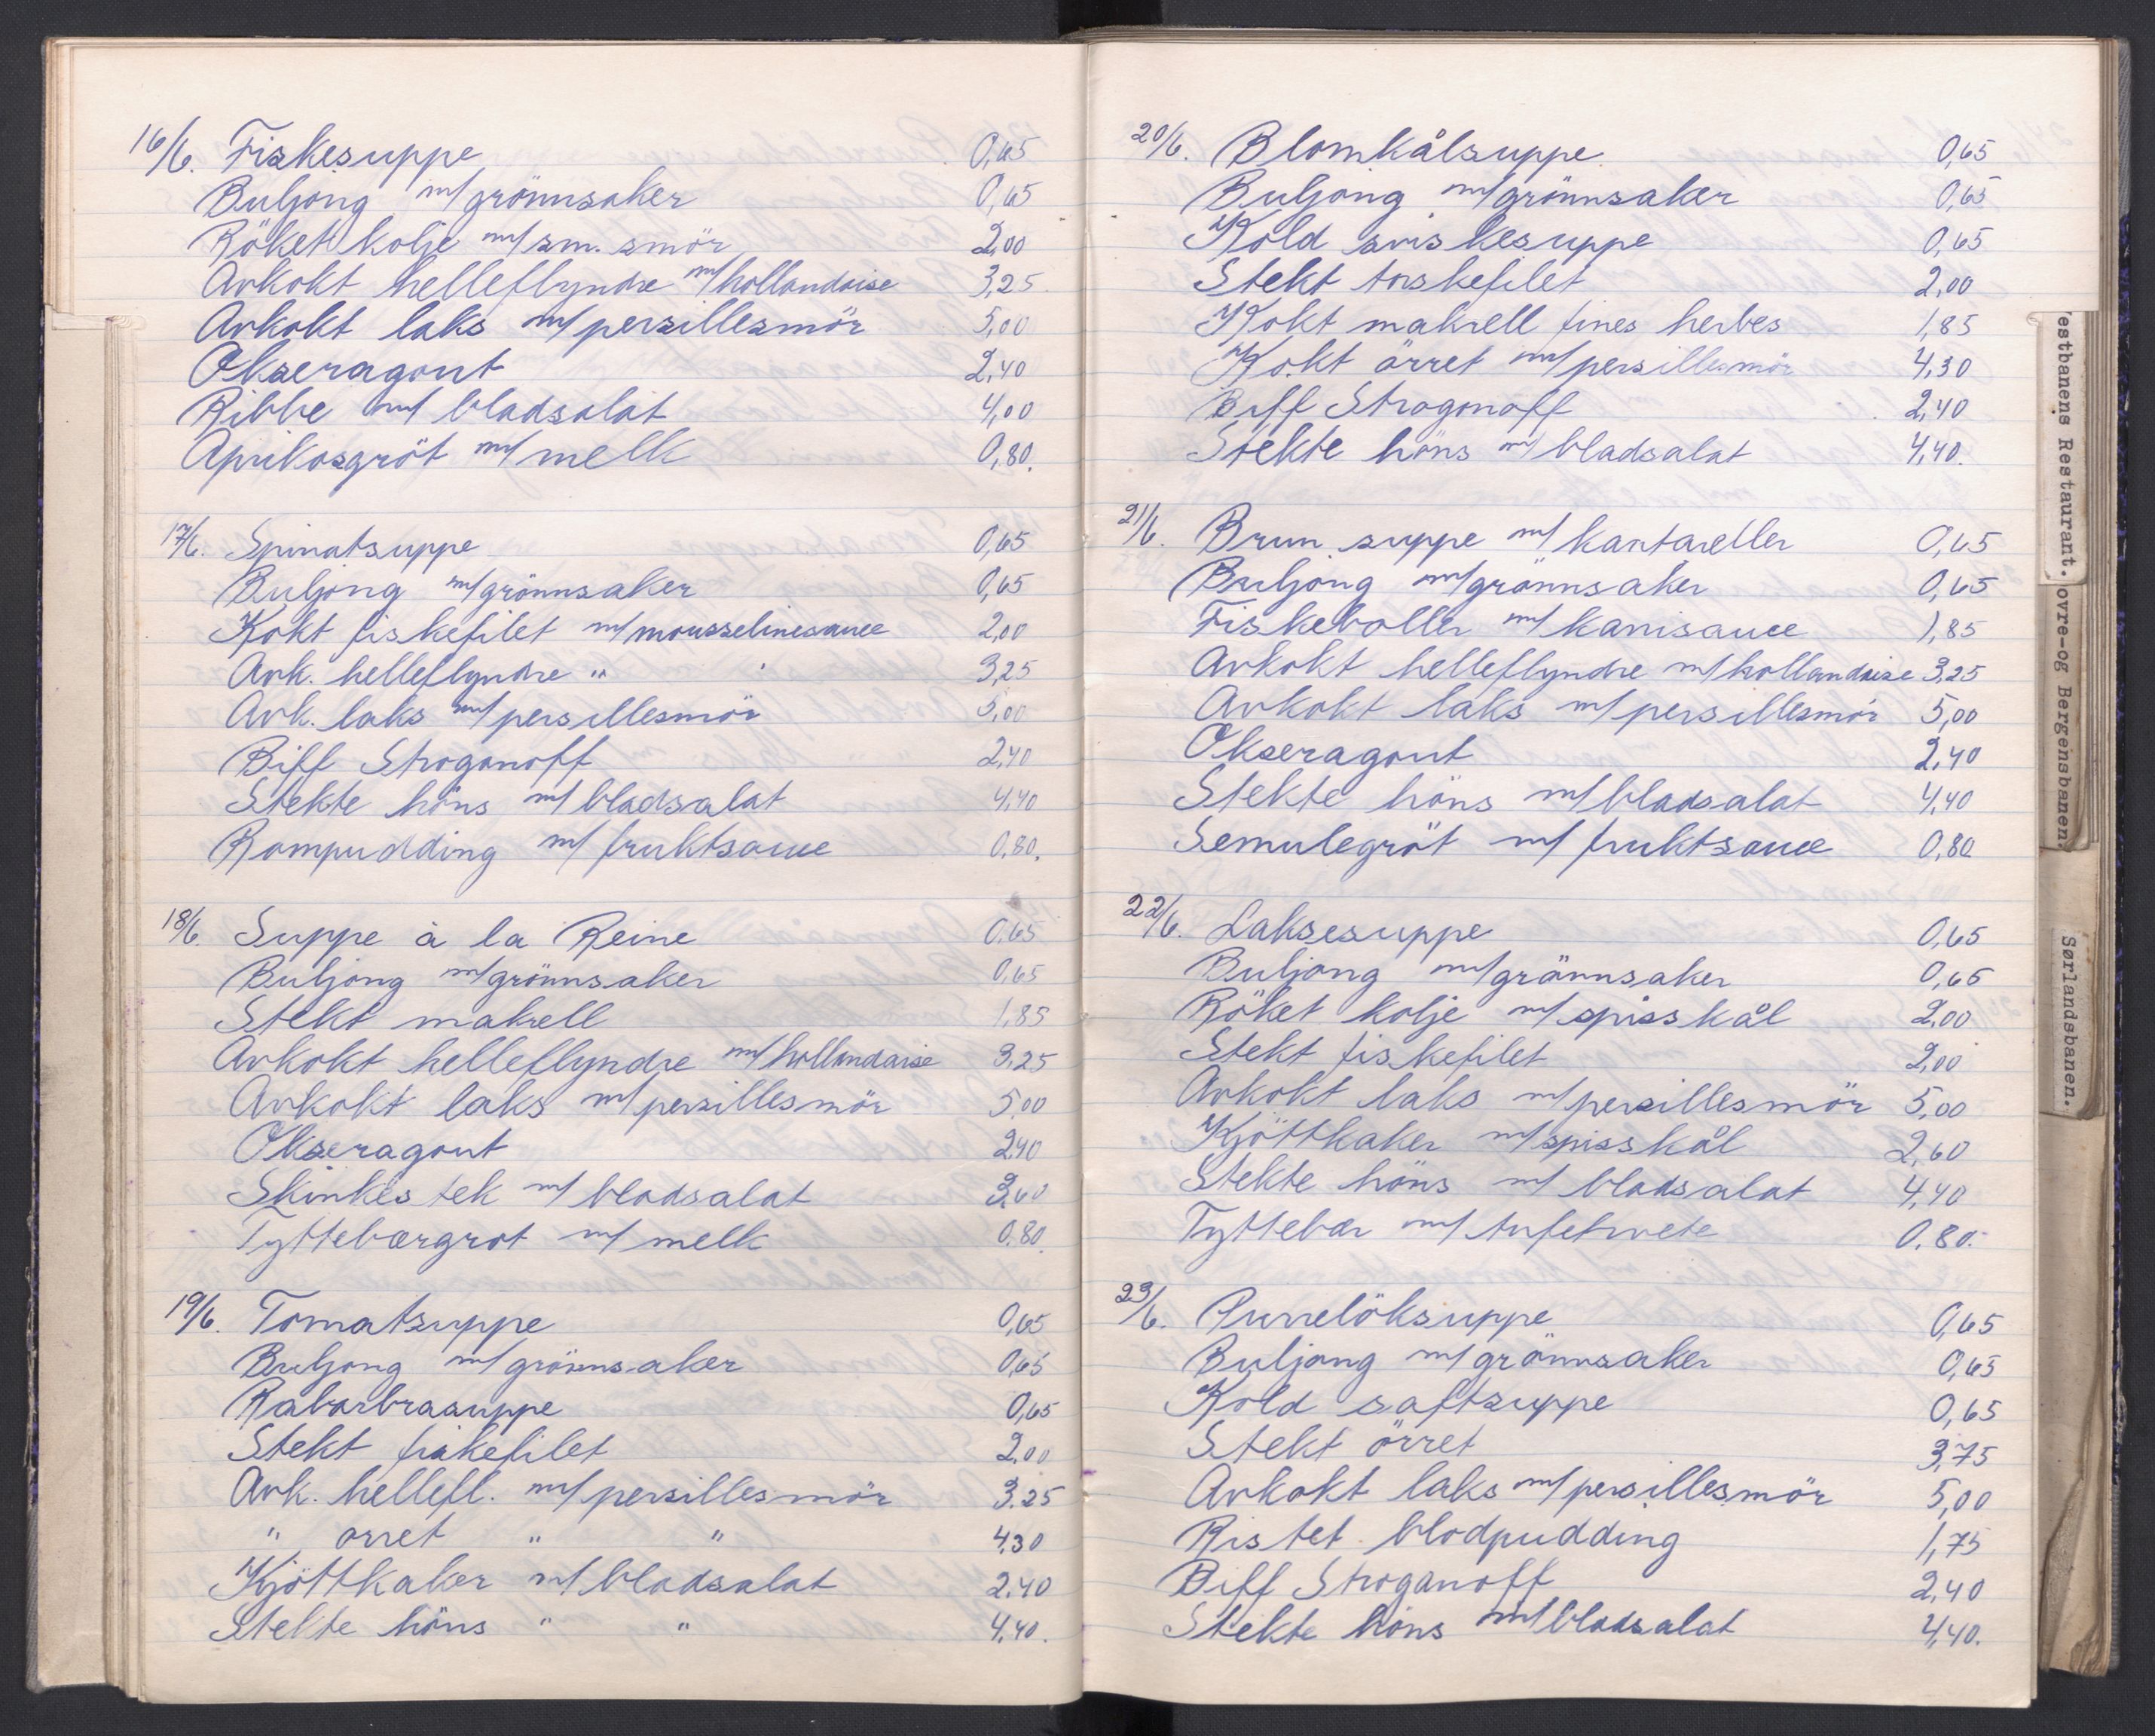 16/6. Fiskesuppe 0,65
Buljong m/grönnsaker 0,65
Röket kolje m/sm. smör 2,00
Avkokt helleflyndre m/hollandaise 3,25
Avkokt laks m/persillesmör 5,00
Okseragout 2,40
Ribbe m/ bladsalat 4,00
Aprikosgröt m/ melk 0,80.
17/6. Spinatsuppe 0,65
Buljong m/grönnsaker 0,65
Kokt fiskefilet m/mousselinesauce 2,00
Avk. helleflyndre " " 3,25
Avk. laks m/persillesmör 5,00
Biff Stroganoff 2,40
Stekte höns m/ bladsalat 4,40
Rompudding m/ fruktsause 0,80.
18/6. Suppe à la Reine 0,65
Buljong m/grönnsaker 0,65
Stekt makrell 1,85
Avkokt helleflyndre m/hollandaise 3.25
Avkokt laks m/persillesmör 5,00
Okseragout 2,40
Skinkestek m/ bladsalat 3,60
Tyttebærgröt m/ melk 0.80.
19/6. Tomatsuppe 0,65
Buljong m/ grönnsaker 0,65
Rabarbrasuppe 0,65
Stekt fiskefilet 2,00
Avk. hellefl. m/persillesmör 3.25
" örret " " 4.30
Kjöttkaker m/ bladsalat 2.40
Stekte höns " " 4,40.
20/6. Blomkålsuppe 0,65
Buljong m/grönnsaker 0,65
Kold sviskesuppe 0,65
Stekt torskefilet 2,00
Kokt makrell fines herbes 1,85
Kokt örret m/persillesmör 4,30
Biff Stroganoff 2,40
Stekte höns m/ bladsalat 4,40.
21/6. Brun suppe m/ kantareller 0,65
Buljong m/grönnsaker 0,65
Fiskeboller m/ karrisauce 1,85
Avkokt helleflyndre m/hollandaise 3,25
Avkokt laks m/persillesmör 5,00
Okseragout 2,40
Stekte höns m/bladsalat 4,40
Semulegröt m/ fruktsauce 0,80
22/6. Laksesuppe 0,65
Buljong m/grönnsaker 0,65
Röket kolje m/ spisskål 2,00
Stekt fiskefilet 2,00
Avkokt laks m/persillesmör 5,00
Kjöttkaker m/spisskål 2,60
Stekte höns m/ bladsalat 4,40
Tyttebær m/ 0.80.
23/6. Purrelöksuppe 0,65
Buljong m/ grönnsaker 0,65
Kold saftsuppe 0,65
Stekt örret 3,75
Avkokt laks m/persillesmör 5,00
Ristet blodpudding 1,75
Biff Stroganoff 2,40
Stekte höns m/bladsalat 4,40.
estbanens Restaurant.
ovre-og Bergensbanen.
Sørlandsbanen.